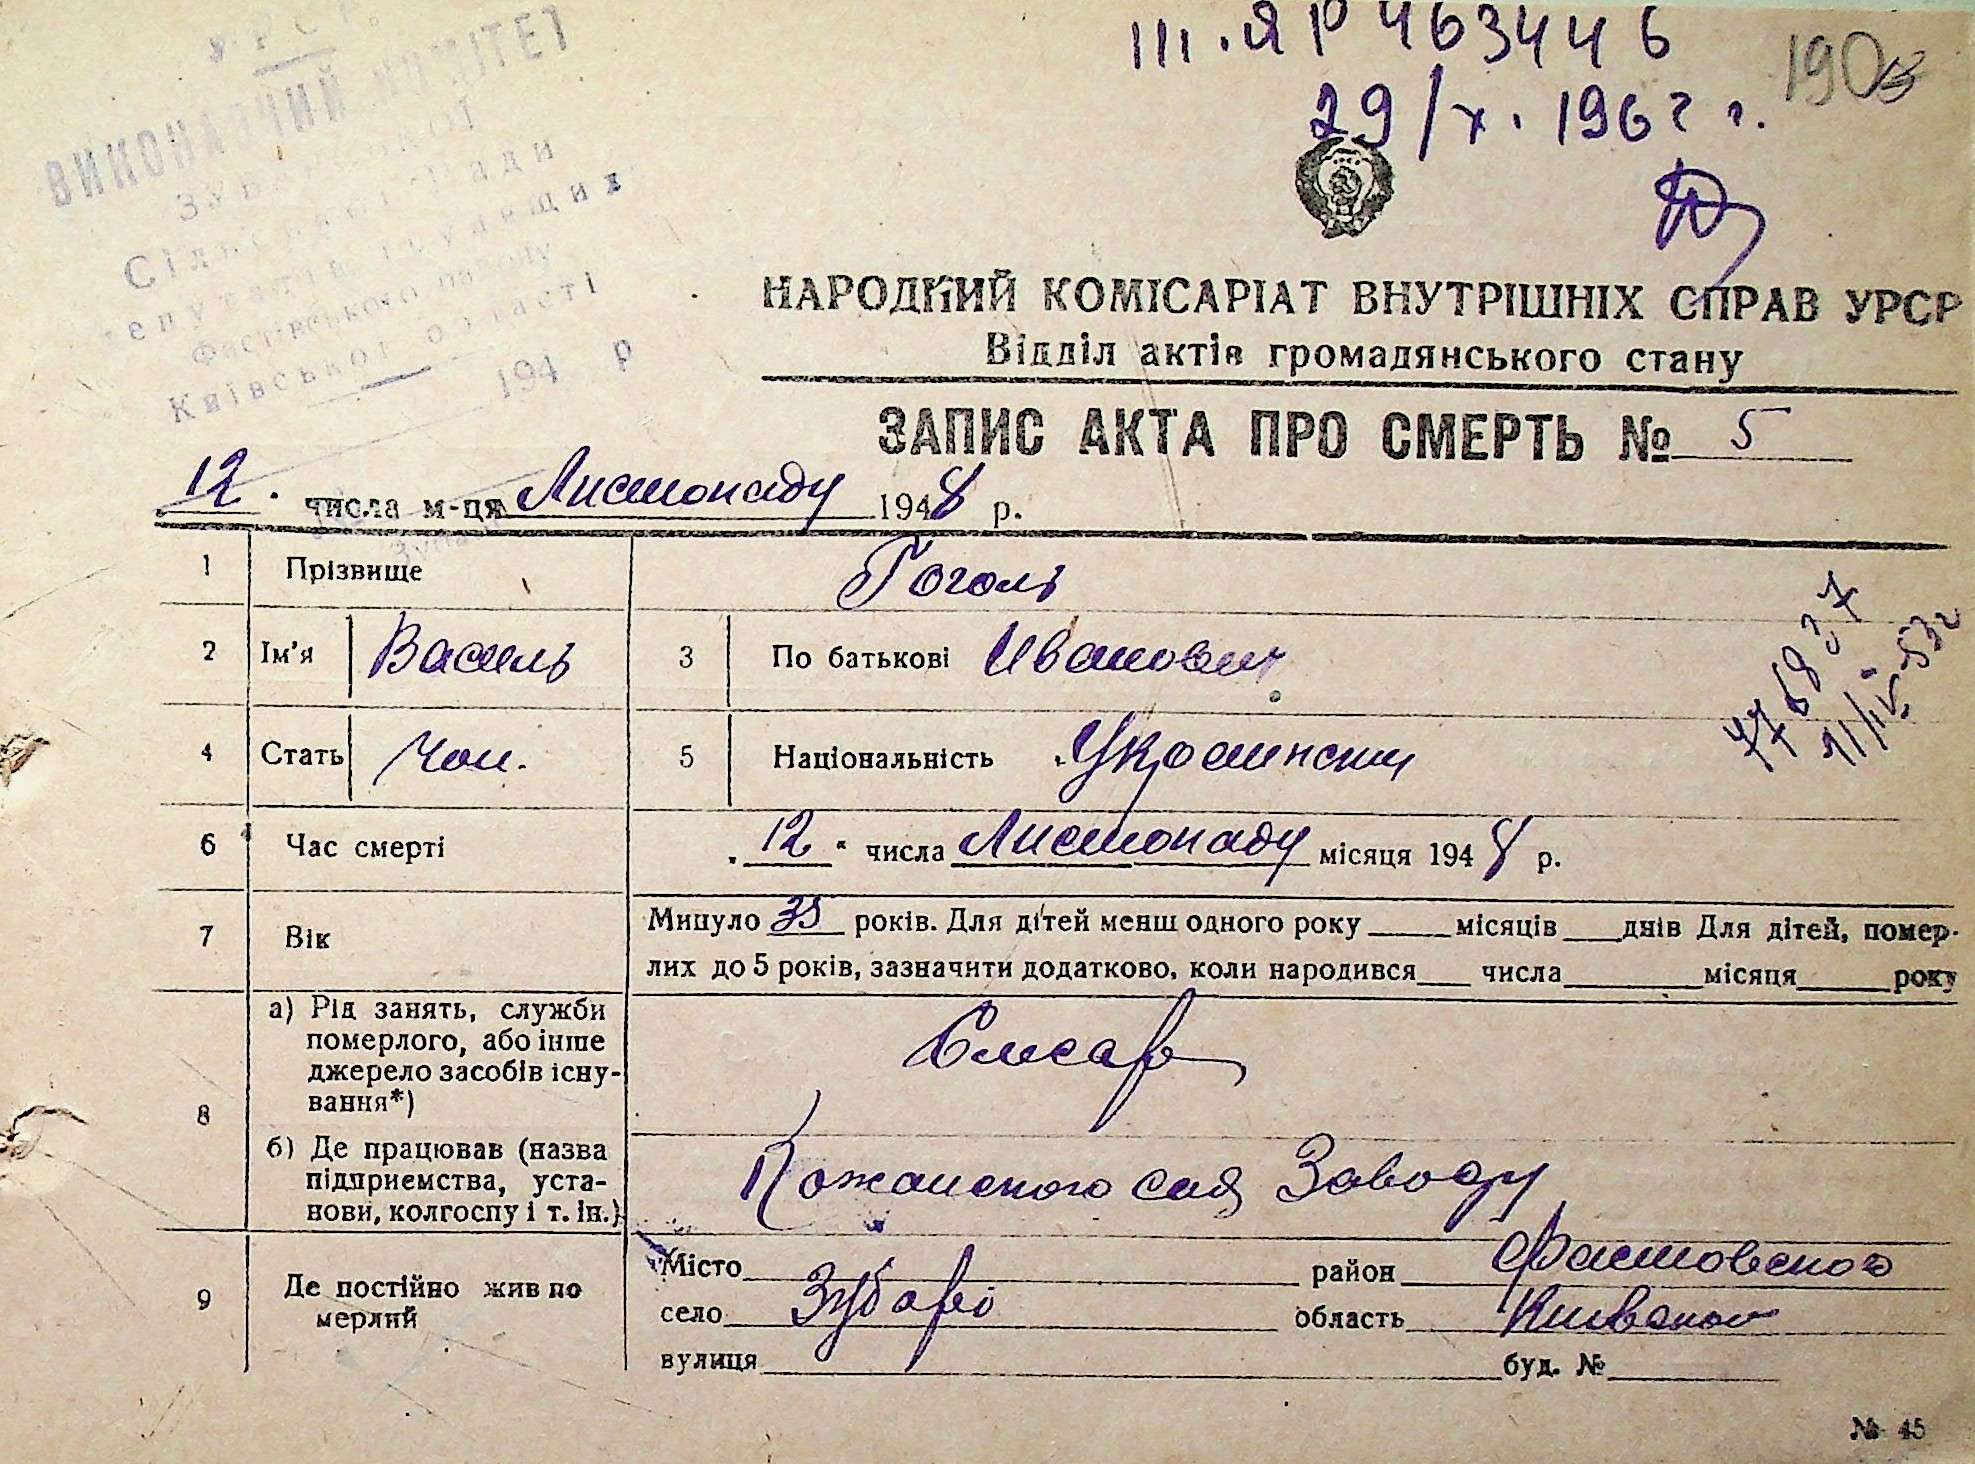 УРСР
ВИКОНАВЧИЙ КОМІТЕТ
Сільської Ради
депутатів трудящих
Фастівського району
Київської області
194 р
III. ЯР 463446
29/X. 1962 г.
190
НАРОДНИЙ КОМІСАРІАТ ВНУТРІШНІХ СПРАВ УРСР
Відділ актів громадянського стану
ЗАПИС АКТА ПРО СМЕРТЬ № 5
12. числа м-ця Листопаду 1948 р.
1 Прізвище Гоголь
2 Ім'я Василь 3 По батькові Иванович
4 Стать Чол. 5 Національність Украинский
6 Час смерті „12“ числа Листопаду місяця 1948 р.
7 Вік Минуло 35 років. Для дітей менш одного року місяців днів Для дітей, помер-
лих до 5 років, зазначити додатково, коли народився числа місяця року
8 а) Рід занять, служби
померлого, або інше
джерело засобів існу-
вання*)
Слесарь
б) Де працював (назва
підприємства, уста-
нови, колгоспу і т. ін.)
Кожанского сах Заводу
9 Де постійно жив по
мерлий
Місто район Фастовского
село Зубарі область Киевской
вулиця буд. №
11/IV-53г
№ 45